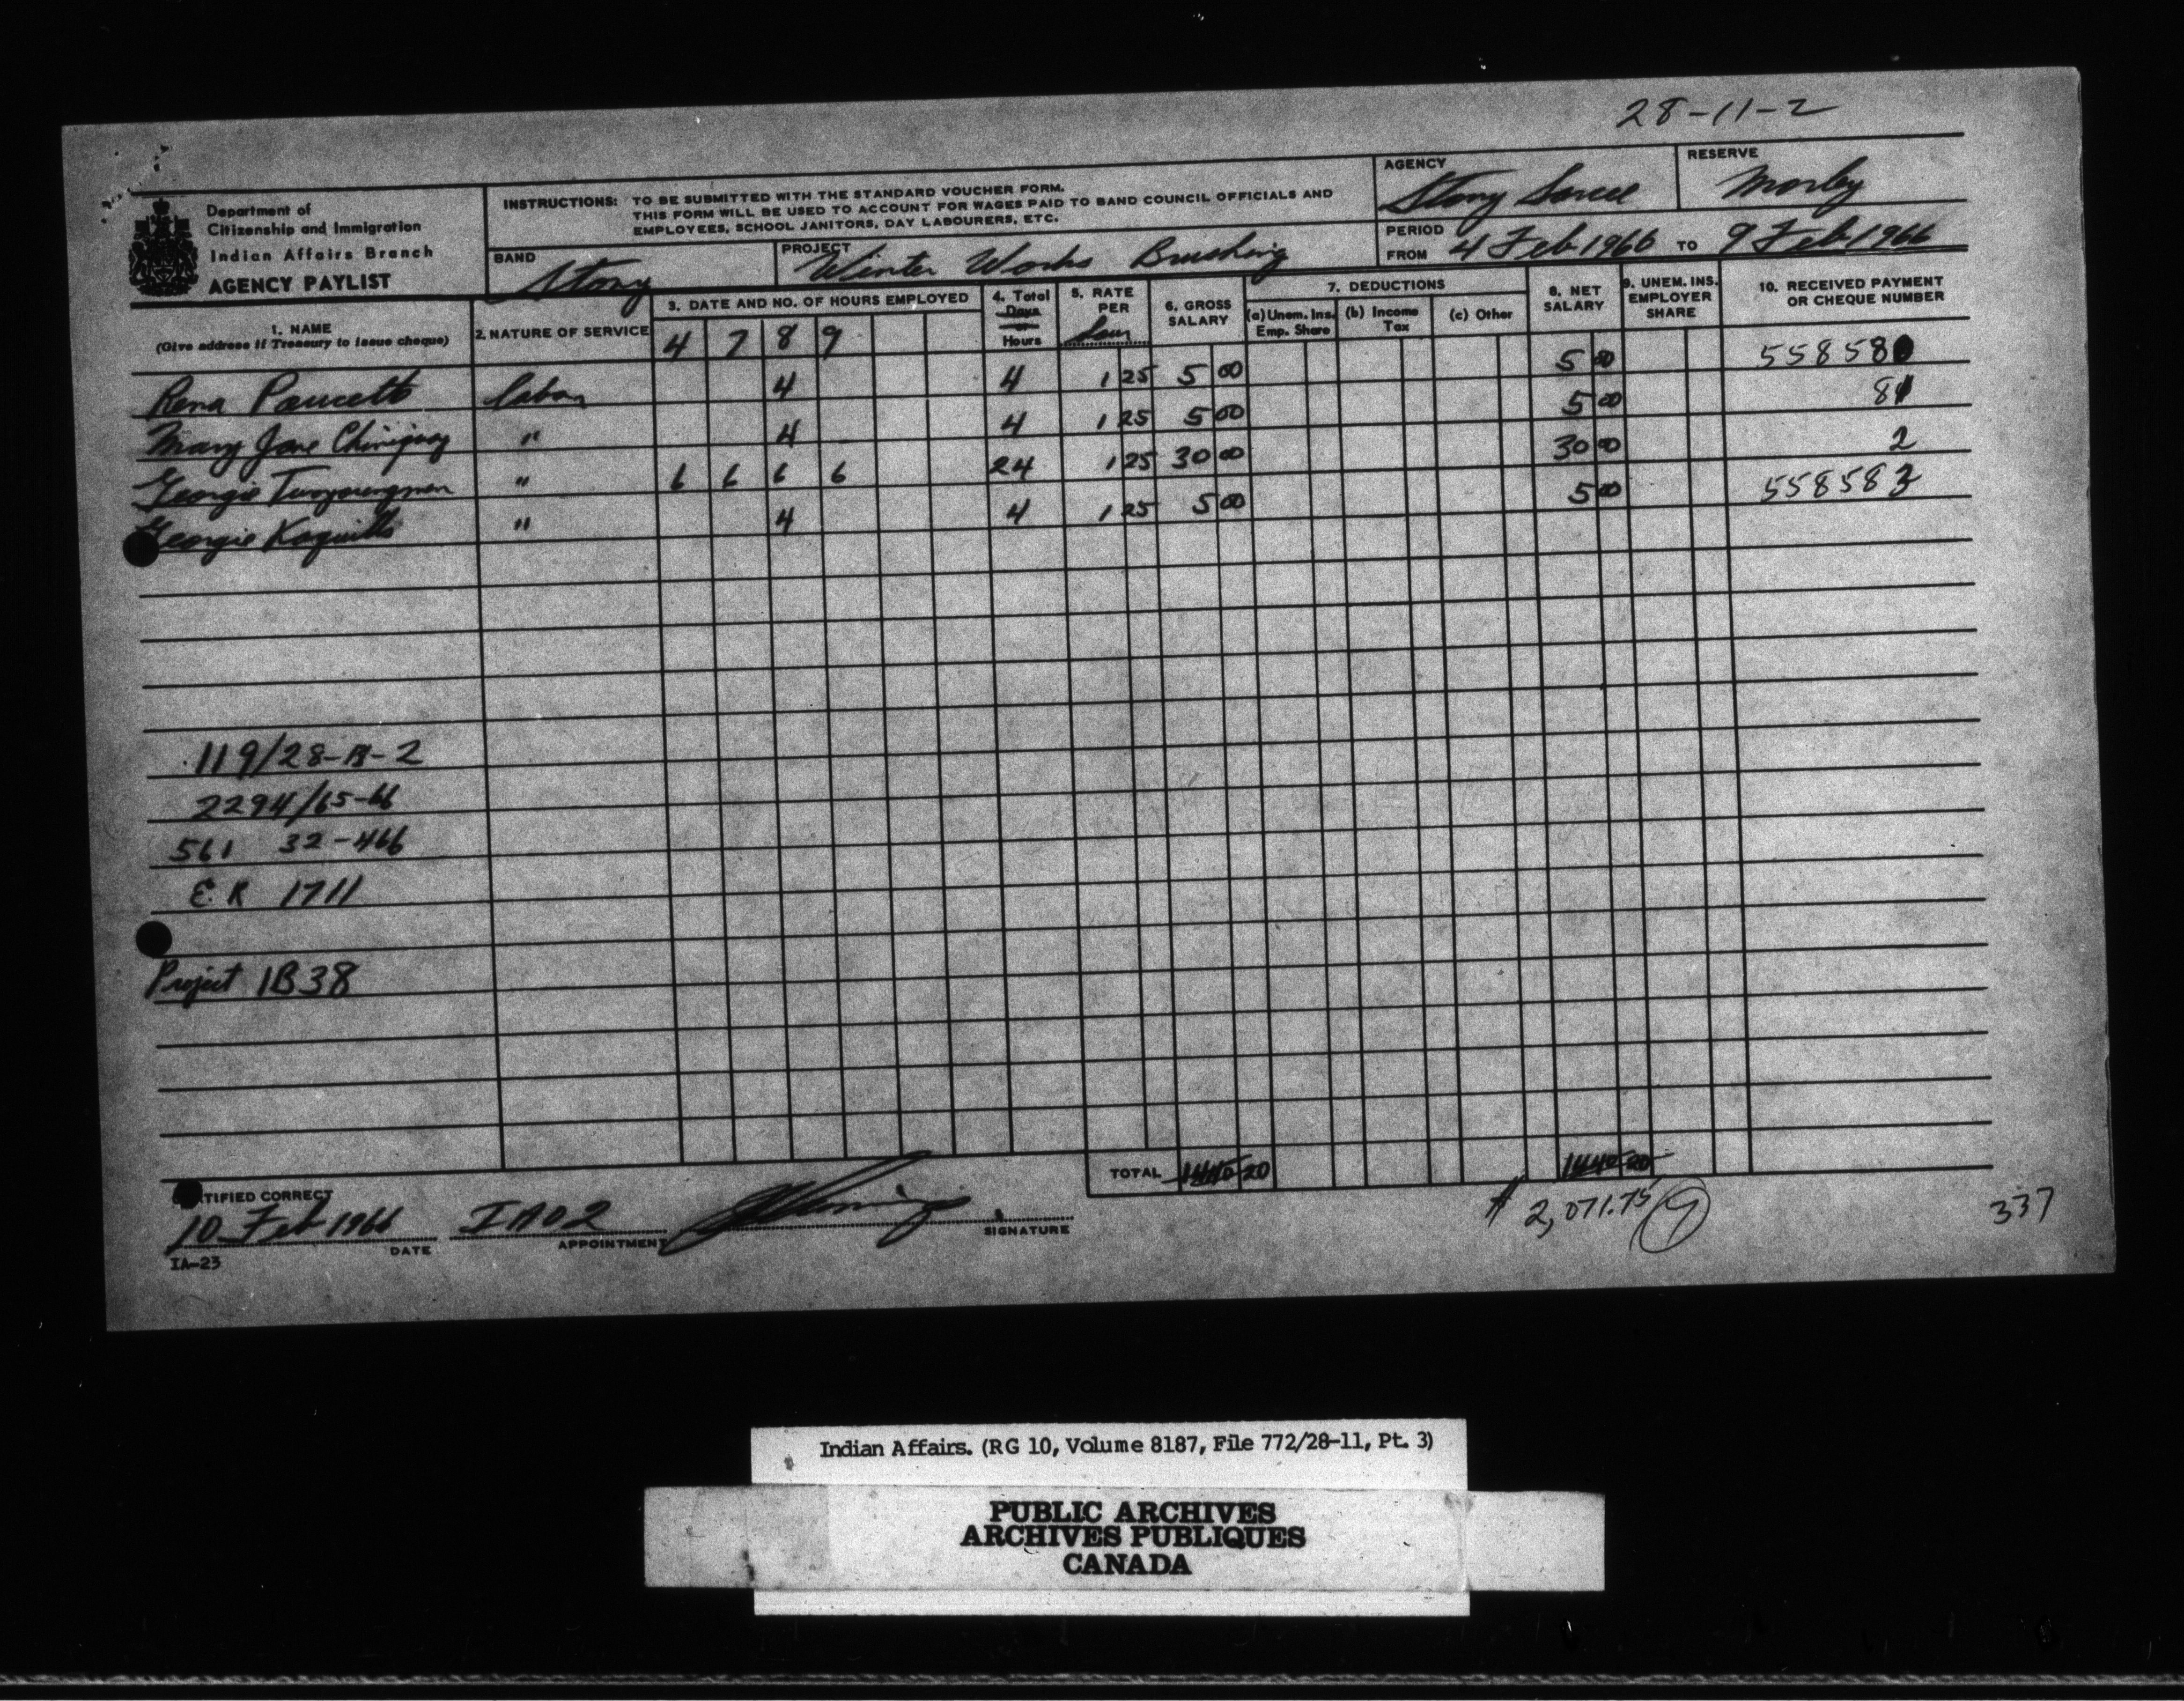 28-11-2
Department of
Citizenship and Immigration
Indian Affairs Branch
AGENCY PAYLIST
INSTRUCTIONS: TO BE SUBMITTED WITH THE STANDARD VOUCHER FORM.
THIS FORM WILL BE USED TO ACCOUNT FOR WAGES PAID TO BAND COUNCIL OFFICIALS AND
EMPLOYEES, SCHOOL JANITORS, DAY LABOURERS, ETC.
AGENCY Stony Sarcee
RESERVE Morley
BAND Stony
PROJECT Winter Works Brushing
PERIOD
FROM 4 Feb 1966 TO 9 Feb 1966
1. NAME
(Give address if Treasury to issue cheque)
2. NATURE OF SERVICE
3. DATE AND NO. OF HOURS EMPLOYED
4 7 8 9
4. Total
Days
or
Hours
5. RATE
PER
hour
6. GROSS
SALARY
7. DEDUCTIONS
(a) Unem. Ins.
Emp. Share
(b) Income
Tax
(c) Other
8. NET
SALARY
9. UNEM. INS.
EMPLOYER
SHARE
10. RECEIVED PAYMENT
OR CHEQUE NUMBER
Rena Poucette labor 4 4 1 25 5 00 5 00 558580
Mary Jane Chiniquay " 4 4 1 25 5 00 5 00 81
Georgie Twoyoungmen " 6 6 6 6 24 1 25 30 00 30 00 2
Georgie Kaquitts " 4 4 1 25 5 00 5 00 558583
119/28-11-2
2294/65-66
561 32-466
E.R 1711
Project 1B38
TOTAL 1440 20 1440 20
$ 2,071.75 9
337
CERTIFIED CORRECT
10 Feb 1966 IA02
DATE APPOINTMENT SIGNATURE
IA-23
Indian Affairs. (RG 10, Volume 8187, File 772/28-11, Pt. 3)
PUBLIC ARCHIVES
ARCHIVES PUBLIQUES
CANADA